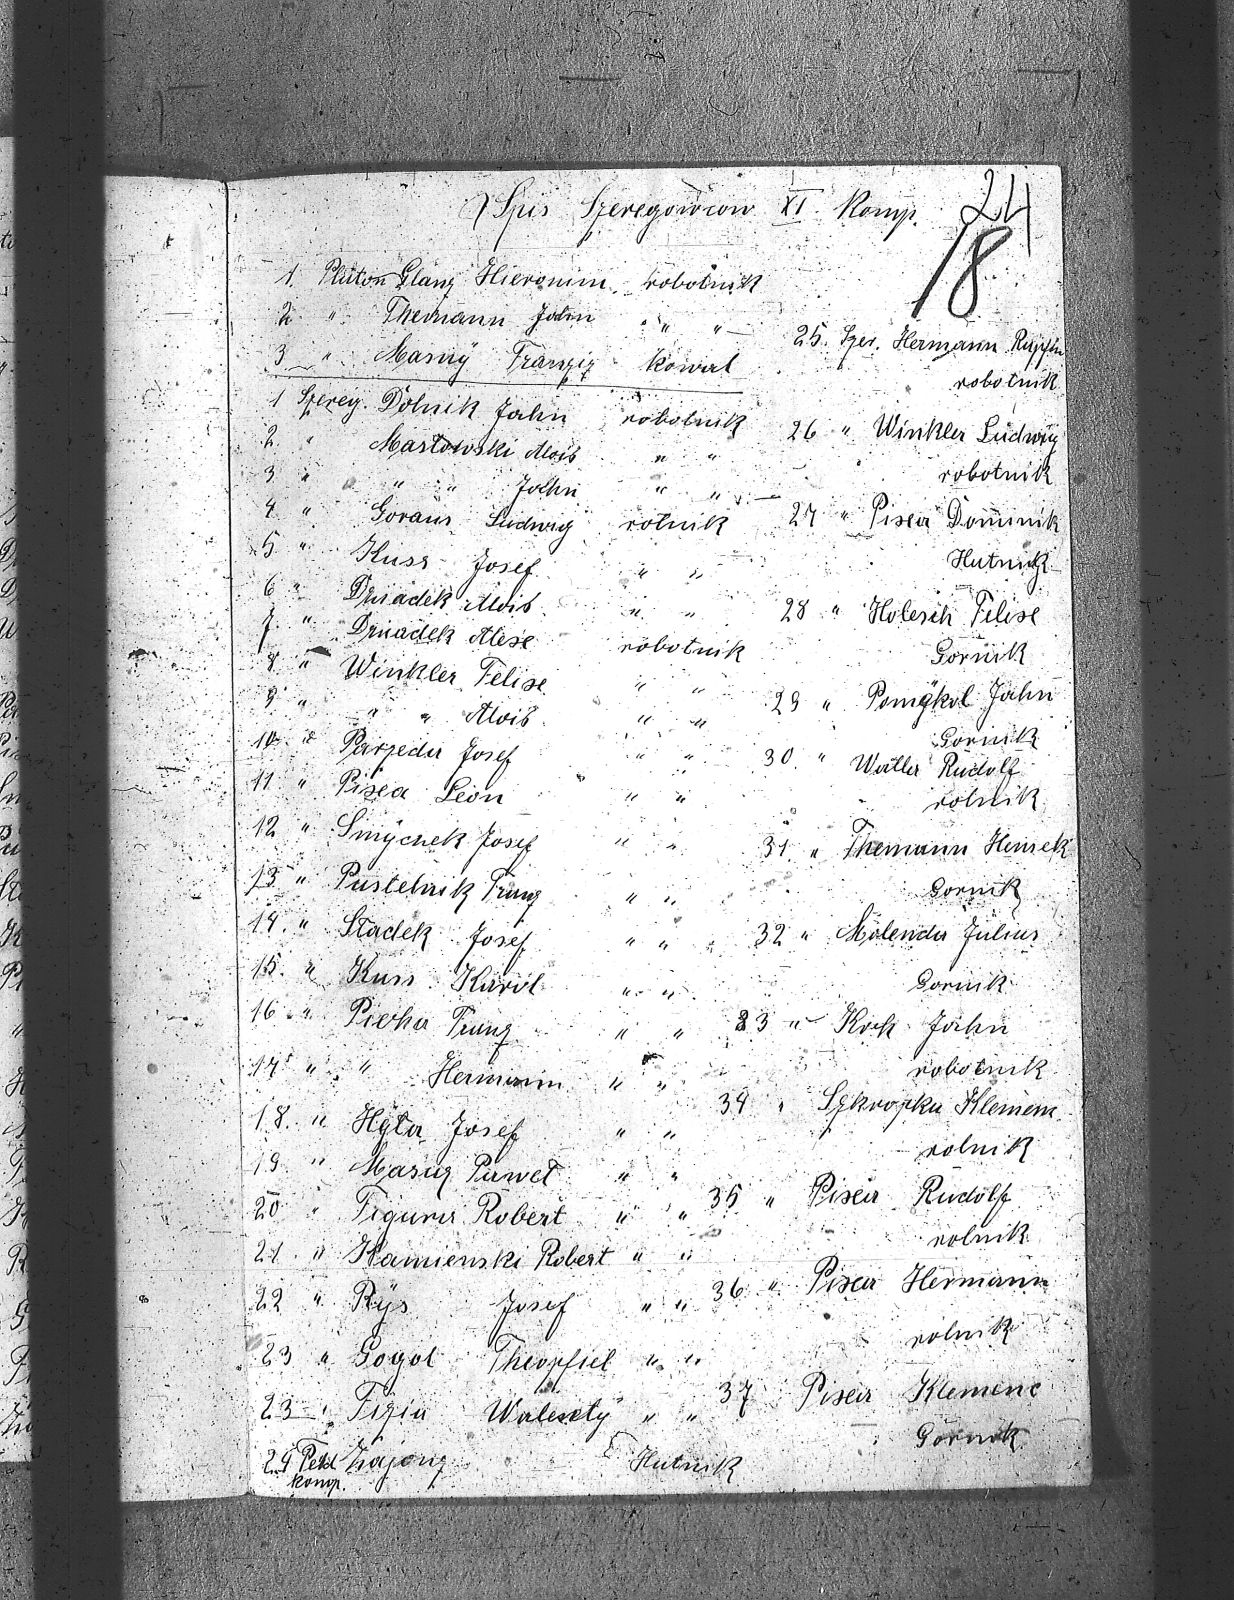 Spis Szeregowcow XI Komp.
24
18
1. Plüton Glanz Hieronim robotnik
2 " Themann John " "
3 " Masnÿ Franziz Kowal
1 Szereg. Dolnik Jahn robotnik
2. " Masłowski Alois " "
3 " " " Jahn " "
4 " Goraus Ludwig rolnik
5 " Kuss Josef " "
6 " Dziadek Alois " "
7. " Dziadek Alese robotnik
8 " Winkler Felise " "
9 " " " Alois " "
10. " Parzeda Josef " "
11 " Pisea Leon " "
12 " Smÿczek Josef " "
13 " Pustelnik Franz " "
14. " Sładek Josef " "
15. " Kuss Karol " "
16 " Piecha Franz " "
17 " " Hermann " "
18. " Hÿla Josef " "
19 " Masuz Paweł " "
20 " Figura Robert " "
21. " Kamienski Robert " "
22 " Rÿs Josef " "
23 " Gogol Theopfiel " "
23 " Fizia Waleskÿ " "
24 Feld Zajonz Hutnik
komp.
25. Szer. Hermann
robotnik
26 " Winkler Ludwig
robotnik
27 " Pisea Dominik
Hutnik
28 " Holesch Felise
Gornik
29 " Pomÿkol Jahn
Gornik
30 " Watla Rudolf
rolnik
31 " Themann Heinrek
Gornik
32 " Molenda Julius
Gornik
33 " Kok Jahn
robotnik
34 " Szkropka Klemenc
rolnik
35 " Pisea Rudolf
rolnik
36 " Pisea Hermann
rolnik
37 Pisea Klemenc
Gornik